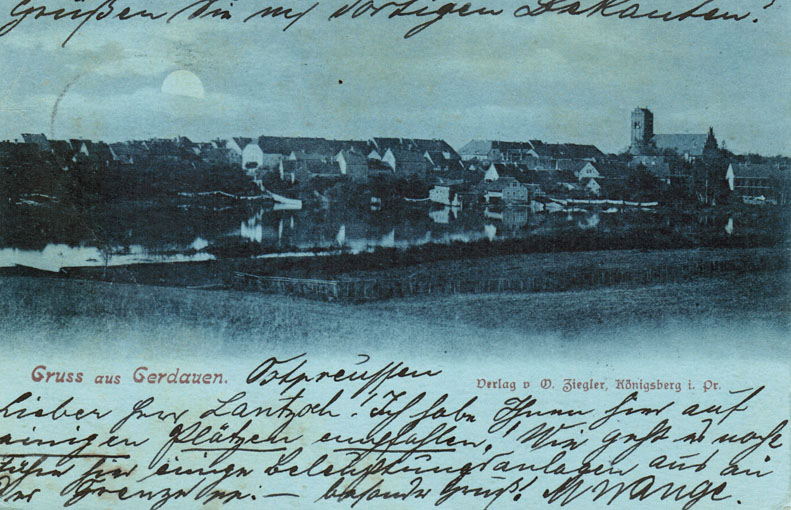 Grüßen Sie mir dortigen Bekannten!
Gruss aus Gerdauen. Ostpreussen
Verlag v O. Ziegler, Königsberg i. Pr.
Lieber Herr Lantzsch! Ich habe Ihnen hier auf
einigen Plätzen empfohlen. Wie geht es noch?
hier einige Beleuchtungsanlagen aus an
der Grenze — besonder Gruß! M Wange.